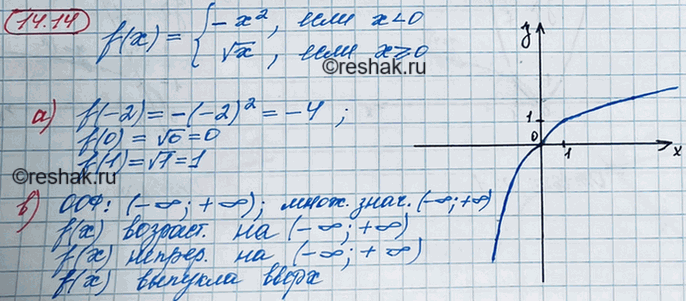 14.14
f(x) = { -x², если x<0
√x, если x⩾0
©reshak.ru
a) f(-2) = -(-2)² = -4;
f(0) = √0 = 0
f(1) = √1 = 1
©reshak.ru
в) ООФ: (-∞; +∞); множ. знач. (-∞; +∞)
f(x) возраст. на (-∞; +∞)
f(x) непрер. на (-∞; +∞)
f(x) выпукла вверх
y
1
0
1
x